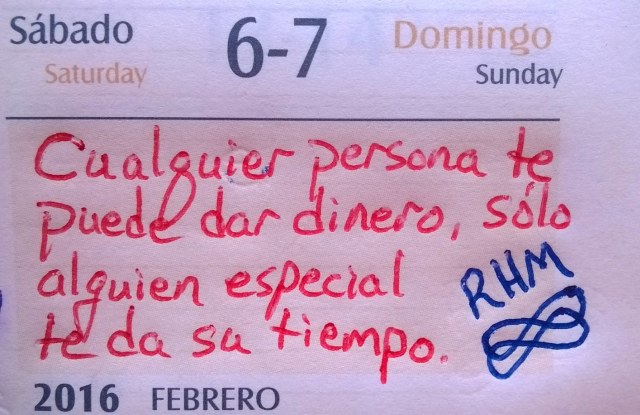 Sábado 6-7 Domingo
Saturday Sunday
Cualquier persona te
puede dar dinero, sólo
alguien especial
te da su tiempo.
RHM
2016 FEBRERO